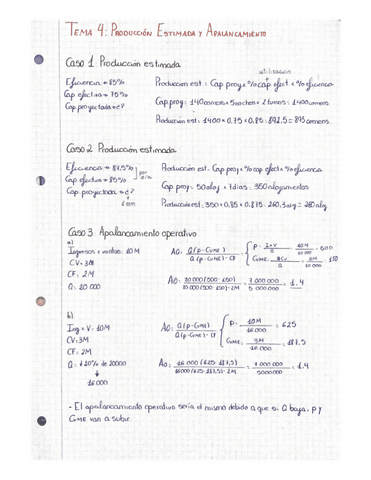 TEMA 4: PRODUCCIÓN ESTIMADA Y APALANCAMIENTO
Caso 1. Producción estimada
Eficiencia = 85%
Cap efectiva = 75%
Cap proyectada = ?
utilización
Produccion est: Cap proy × % cap efect × % eficiencia
Cap proy:
Producción est: 1400 × 0.75 × 0.85 = 892.5 = 893
Caso 2 Producción estimada
Eficiencia = 87.5%
Cap efectiva = 85%
Cap proyectada = ?
Producción est: Cap proy × % cap efect × % eficiencia
Cap proy: 50 aloj × 7 días: 350 alojamientos
Producción est: 350 × 0.85 × 0.875: 260.3 alg = 260 aloj
Caso 3 Apalancamiento operativo
a)
Ingresos x ventas: 10M
CV = 3M
CF: 2M
Q: 20 000
AO: Q(P-CVME) / Q(P-CVME) - CF
P = I×V / Q = 10M / 20 000 = 500
AO = 20 000 (500-150) / 20 000 (500-150) - 2M = 7 000 000 / 5 000 000 = 1.4
b)
Ing × V: 10M
CV: 3M
CF: 2M
Q: ↓20% de 20000
↓
16 000
AO = Q(P-CVME) / Q(P-CVME) - CF
P = 10M / 16 000 = 625
CVME = 3M / 16 000 = 187.5
AO = 16 000 (625-187,5) / 16000 (625-187,5) - 2M = 7 000 000 / 5000000 = 1.4
- El apalancamiento operativo sería el mismo debido a que si Q baja, P y
CVME van a subir.